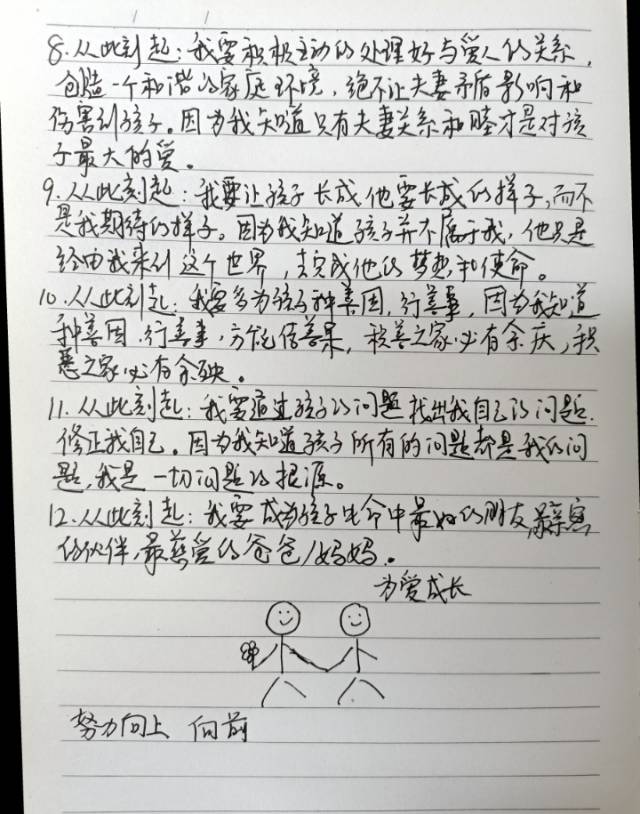 8.从此刻起:我要积极主动的处理好与爱人的关系,
创造一个和谐的家庭环境,绝不让夫妻矛盾影响和
伤害到孩子。因为我知道只有夫妻关系和睦才是对孩
子最大的爱。
9.从此刻起:我要让孩子长成他要长成的样子,而不
是我期待的样子。因为我知道孩子并不属于我,他只是
经由我来到这个世界,去完成他的梦想和使命。
10.从此刻起:我要多为孩子种善因,行善事,因为我知道
种善因,行善事,方能结善果,积善之家必有余庆,积
恶之家必有余殃。
11.从此刻起:我要通过孩子的问题找出我自己的问题.
修正我自己。因为我知道孩子所有的问题都是我的问
题,我是一切问题的根源。
12.从此刻起:我要成为孩子生命中最好的朋友,最亲密
的伙伴,最慈爱的爸爸/妈妈.
为爱成长
努力向上 向前